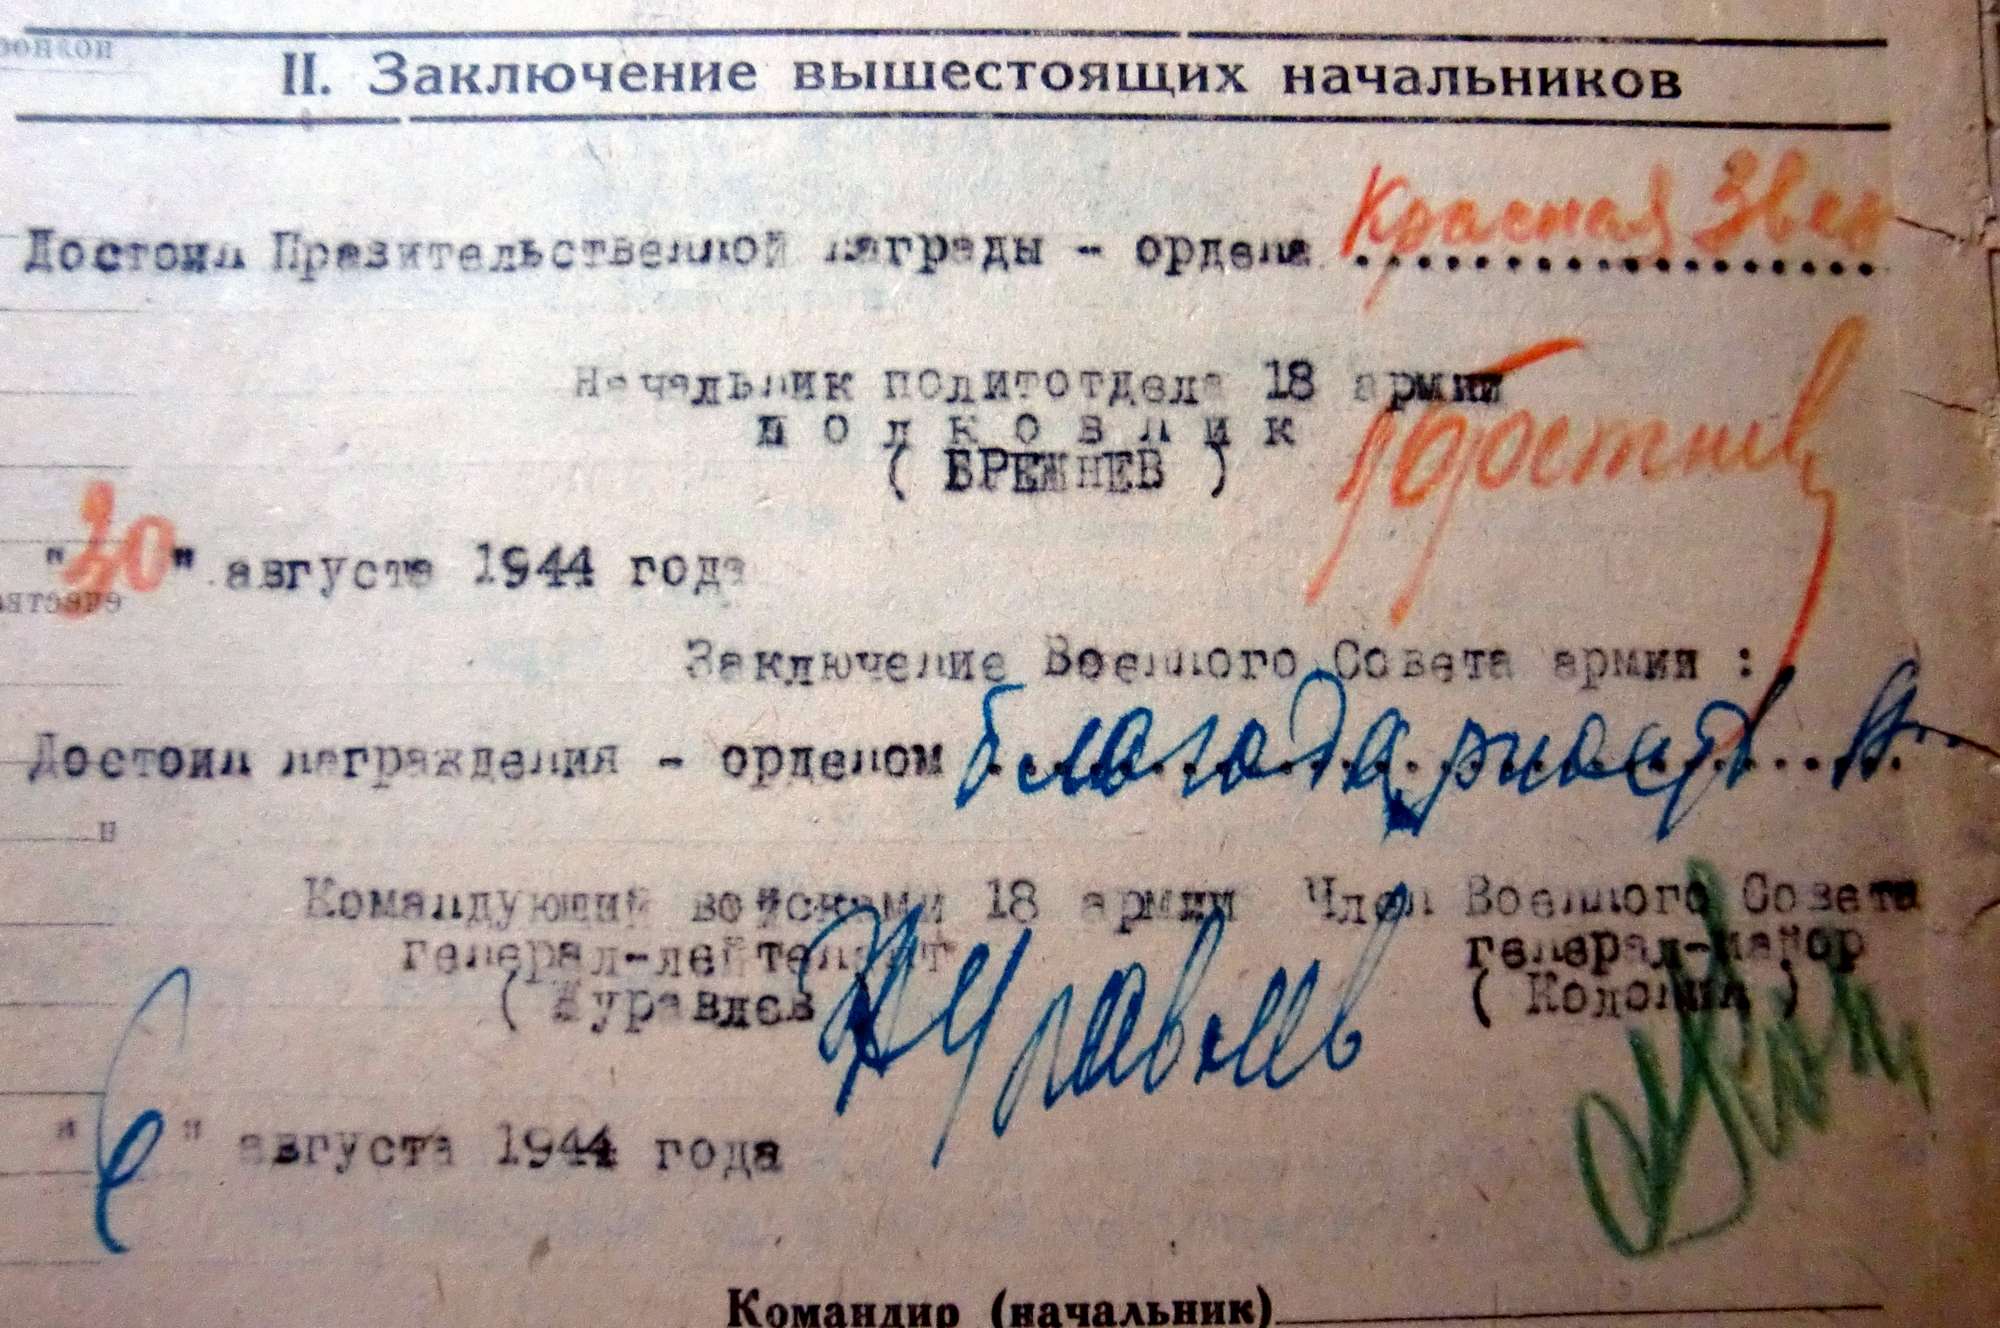 II. Заключение вышестоящих начальников
Достоин Правительственной награды - ордена Красная Звез
Начальник политотдела 18 армии
полковник
( БРЕЖНЕВ )
"30" августа 1944 года
Заключение Военного Совета армии :
Достоин награждения - орденом благодарность
Командующий войсками 18 армии Член Военного Совета
генерал-лейтенант генерал-майор
( Журавлев ) ( Колонин )
Журавлев
" " августа 1944 года
Командир (начальник)